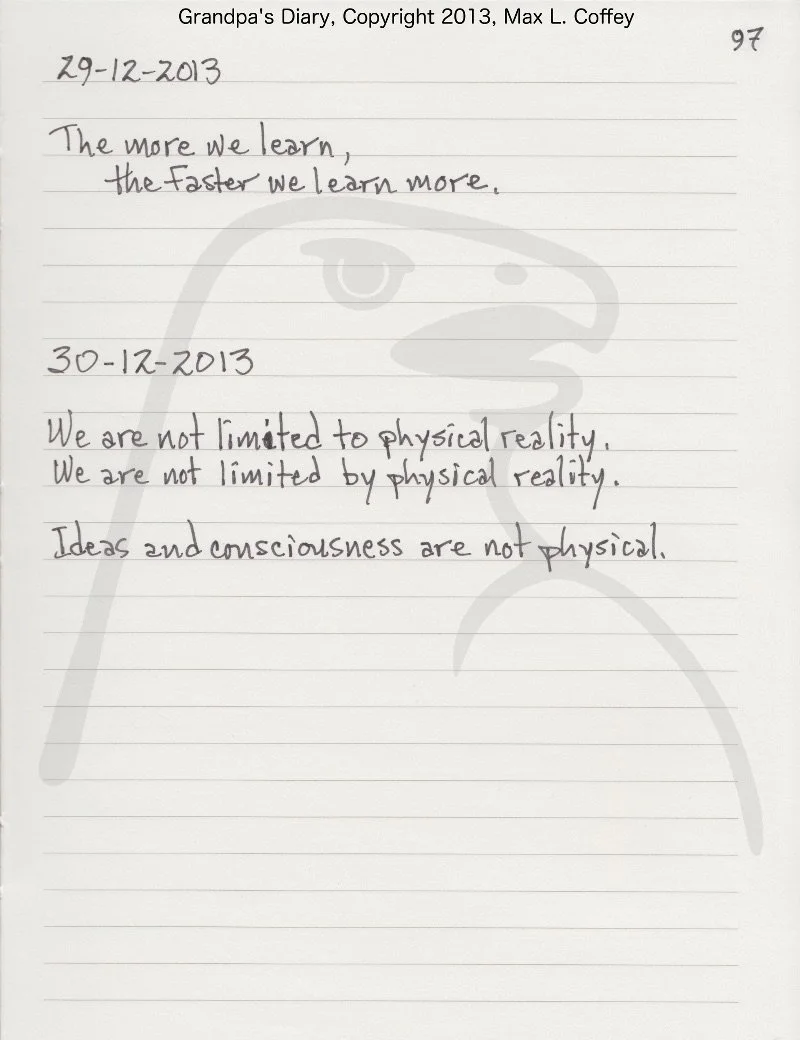 Grandpa's Diary, Copyright 2013, Max L. Coffey
97
29-12-2013
The more we learn,
the faster we learn more.
30-12-2013
We are not limited to physical reality.
We are not limited by physical reality.
Ideas and consciousness are not physical.